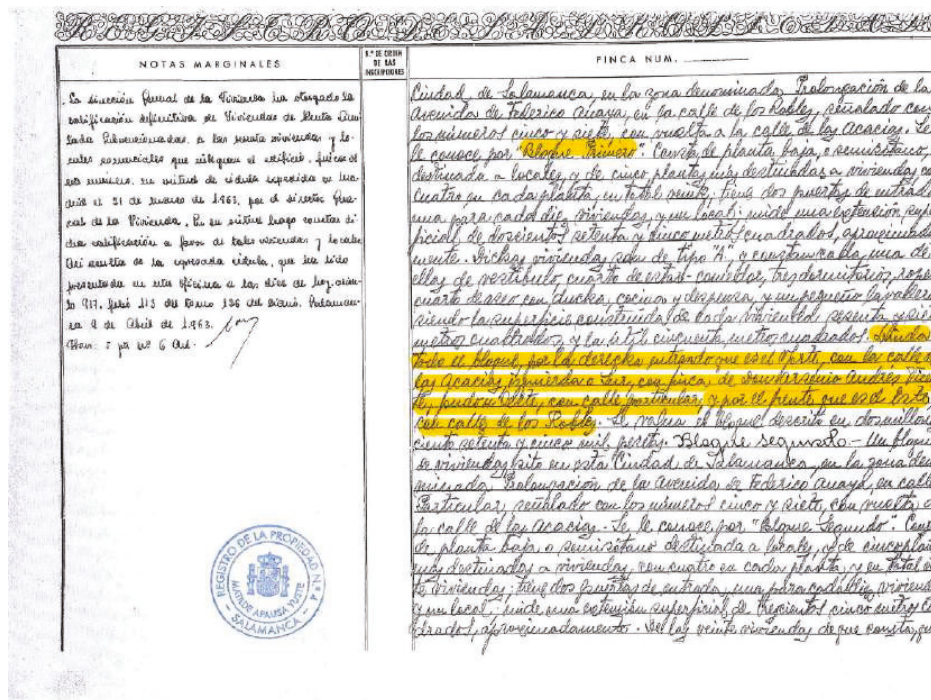 NOTAS MARGINALES
N.º DE ORDEN
DE LAS
INSCRIPCIONES
FINCA NUM.
La Dirección General de la Vivienda ha otorgado la
calificación definitiva de Viviendas de Renta Limi
tada Subvencionadas, a las viviendas y lo
cales comerciales que integran el edificio, finca de
este número, en virtud de cédula expedida en Ma
drid el 21 de Marzo de 1.963, por el Director Gene
ral de la Vivienda. En su virtud hago constar di
cha calificación a favor de tales viviendas y locales
Así resulta de la expresada cédula, que ha sido
presentada en esta oficina a las diez de hoy, asien
to 917, folio 113 del tomo 136 del Diario. Salaman-
ca 9 de Abril de 1.963.
Hon: 5 pts nº 6 Art.
REGISTRO DE LA PROPIEDAD N.º 4
SALAMANCA
Ciudad de Salamanca, en la zona denominada Prolongación de la
Avenida de Federico Anaya, en la calle de los Robles, señalado con
los números cinco y siete, con vuelta a la calle de las Acacias. Se
le conoce por "Bloque Primero". Consta de planta baja, o semisótano,
destinada a locales, y de cinco plantas más destinadas a viviendas con
cuatro en cada planta, en total veinte, tiene dos puertas de entrada
una para cada diez viviendas, y un local: mide una extensión super
ficial de doscientos setenta y cinco metros cuadrados, aproximada
mente. Dichas viviendas son de tipo "A", y constan cada una de
ellas de vestíbulo, cuarto de estar-comedor, tres dormitorios, ropero
cuarto de aseo con ducha, cocina y despensa, y un pequeño lavadero
siendo la superficie construida de cada vivienda sesenta y sie
metros cuadrados, y la útil cincuenta metros cuadrados. Linda
todo el bloque, por la derecha entrando que es el Norte, con la calle d
las Acacias, izquierda o Sur, con finca de don Arsenio Andrés
fondo u Oeste, con calle particular, y por el frente que es el Este
con calle de los Robles. Se valora el bloque descrito en dos millones
ciento setenta y cinco mil pesetas. Bloque segundo - Un bloque
de viviendas, sito en esta Ciudad de Salamanca, en la zona deno
minada Prolongación de la Avenida de Federico Anaya, en calle
Particular, señalado con los números cinco y siete, con vuelta a
la calle de las Acacias. Se le conoce por "Bloque Segundo". Cons
de planta baja o semisótano destinada a locales, y de cinco plan
más destinadas a viviendas, con cuatro en cada planta, y en total v
te viviendas: tiene dos puertas de entrada, una para cada diez vivienda
y un local: mide una extensión superficial de trescientos cinco metros cu
drados, aproximadamente. De las veinte viviendas de que consta, cu